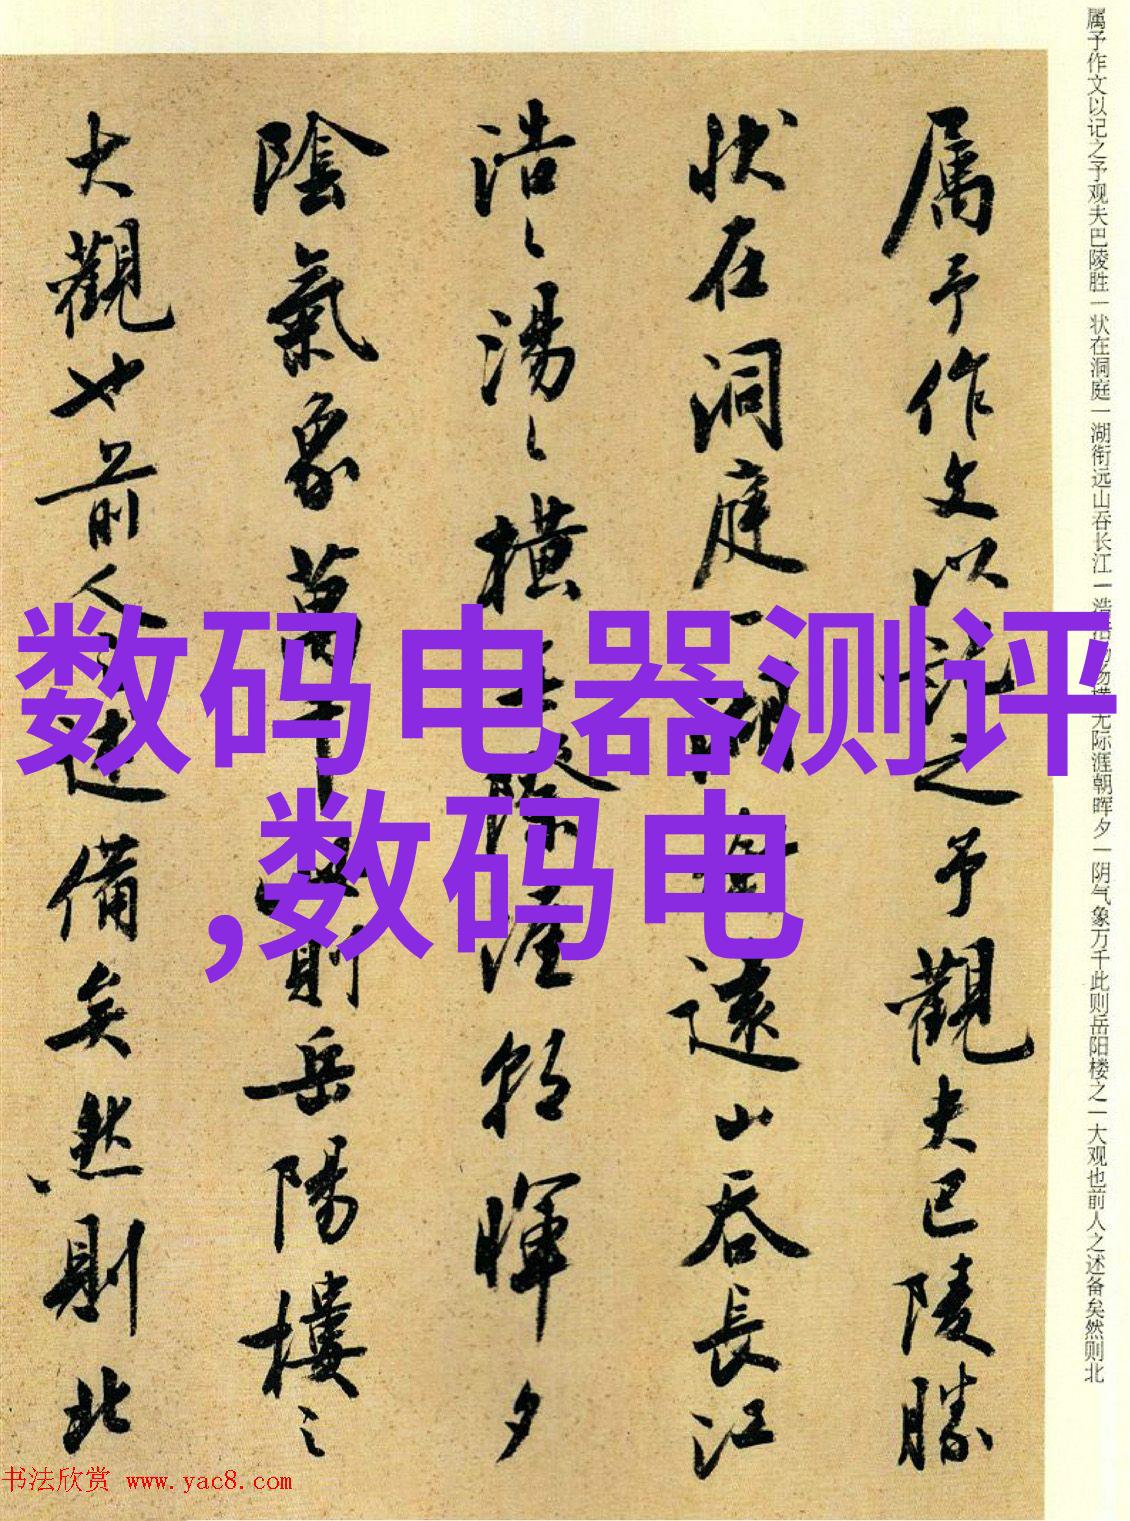 属予作文以记之予观夫巴陵胜一状在洞庭一湖衔远山吞长江一浩浩汤汤横无际涯朝晖夕一阴气象万千此则岳阳楼之一大观也前人之述备矣然则北
属予作文以記之予觀夫巴陵勝
状在洞庭一湖銜遠山吞長江
浩〻湯〻橫無際涯朝暉夕
陰氣象萬千此則岳陽樓之
大觀也前人之述備矣然則北
数码电器测评
,数码电
书法欣赏 www.yac8.com